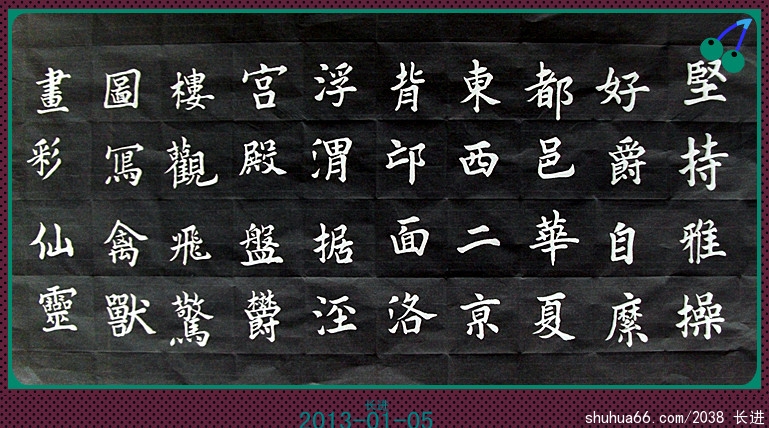 堅持雅操
好爵自縻
都邑華夏
東西二京
背邙面洛
浮渭据涇
宮殿盤鬱
樓觀飛驚
圖寫禽獸
畫彩仙靈
长进
2013-01-05
shuhua66.com/2038 长进